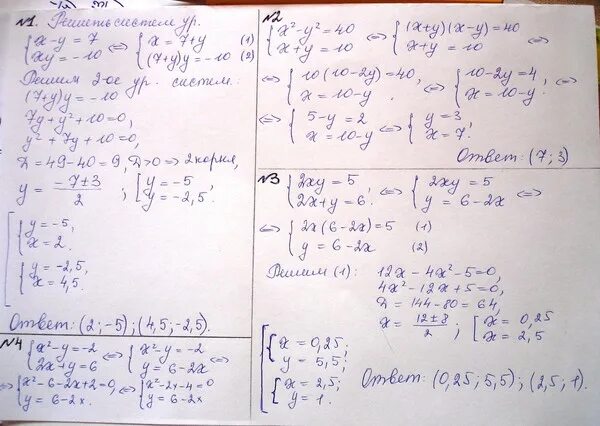 №1. Решить систем ур.
{x-y=7 <=> {x=7+y (1)
{xy=-10 {(7+y)y=-10 (2)
Решим 2-ое ур. систем:
(7+y)y=-10
7y+y²+10=0,
y²+7y+10=0,
D=49-40=9, D>0 => 2 корня,
y= (-7±3)/2 ; [y=-5,
[y=-2,5.
[{y=-5,
{x=2.
{y=-2,5,
{x=4,5.
Ответ: (2;-5); (4,5;-2,5).
№2
{x²-y²=40 <=> {(x+y)(x-y)=40
{x+y=10 {x+y=10 <=>
<=> {10(10-2y)=40, <=> {10-2y=4, <=>
{x=10-y. {x=10-y.
<=> {5-y=2 <=> {y=3,
{x=10-y {x=7.
Ответ: (7;3)
№3 {2xy=5, <=> {2xy=5 <=>
{2x+y=6. {y=6-2x
<=> {2x(6-2x)=5 (1)
{y=6-2x (2)
Решим (1): 12x-4x²-5=0,
4x²-12x+5=0,
D=144-80=64,
x= (12±8)/2 ; [x=0,25
[x=2,5
[{x=0,25;
{y=5,5;
{x=2,5;
{y=1.
Ответ: (0,25;5,5); (2,5;1).
№4 {x²-y=-2 <=> {x²-y=-2 <=>
{2x+y=6 {y=6-2x
<=> {x²-6-2x+2=0, <=> {x²-2x-4=0
{y=6-2x. {y=6-2x